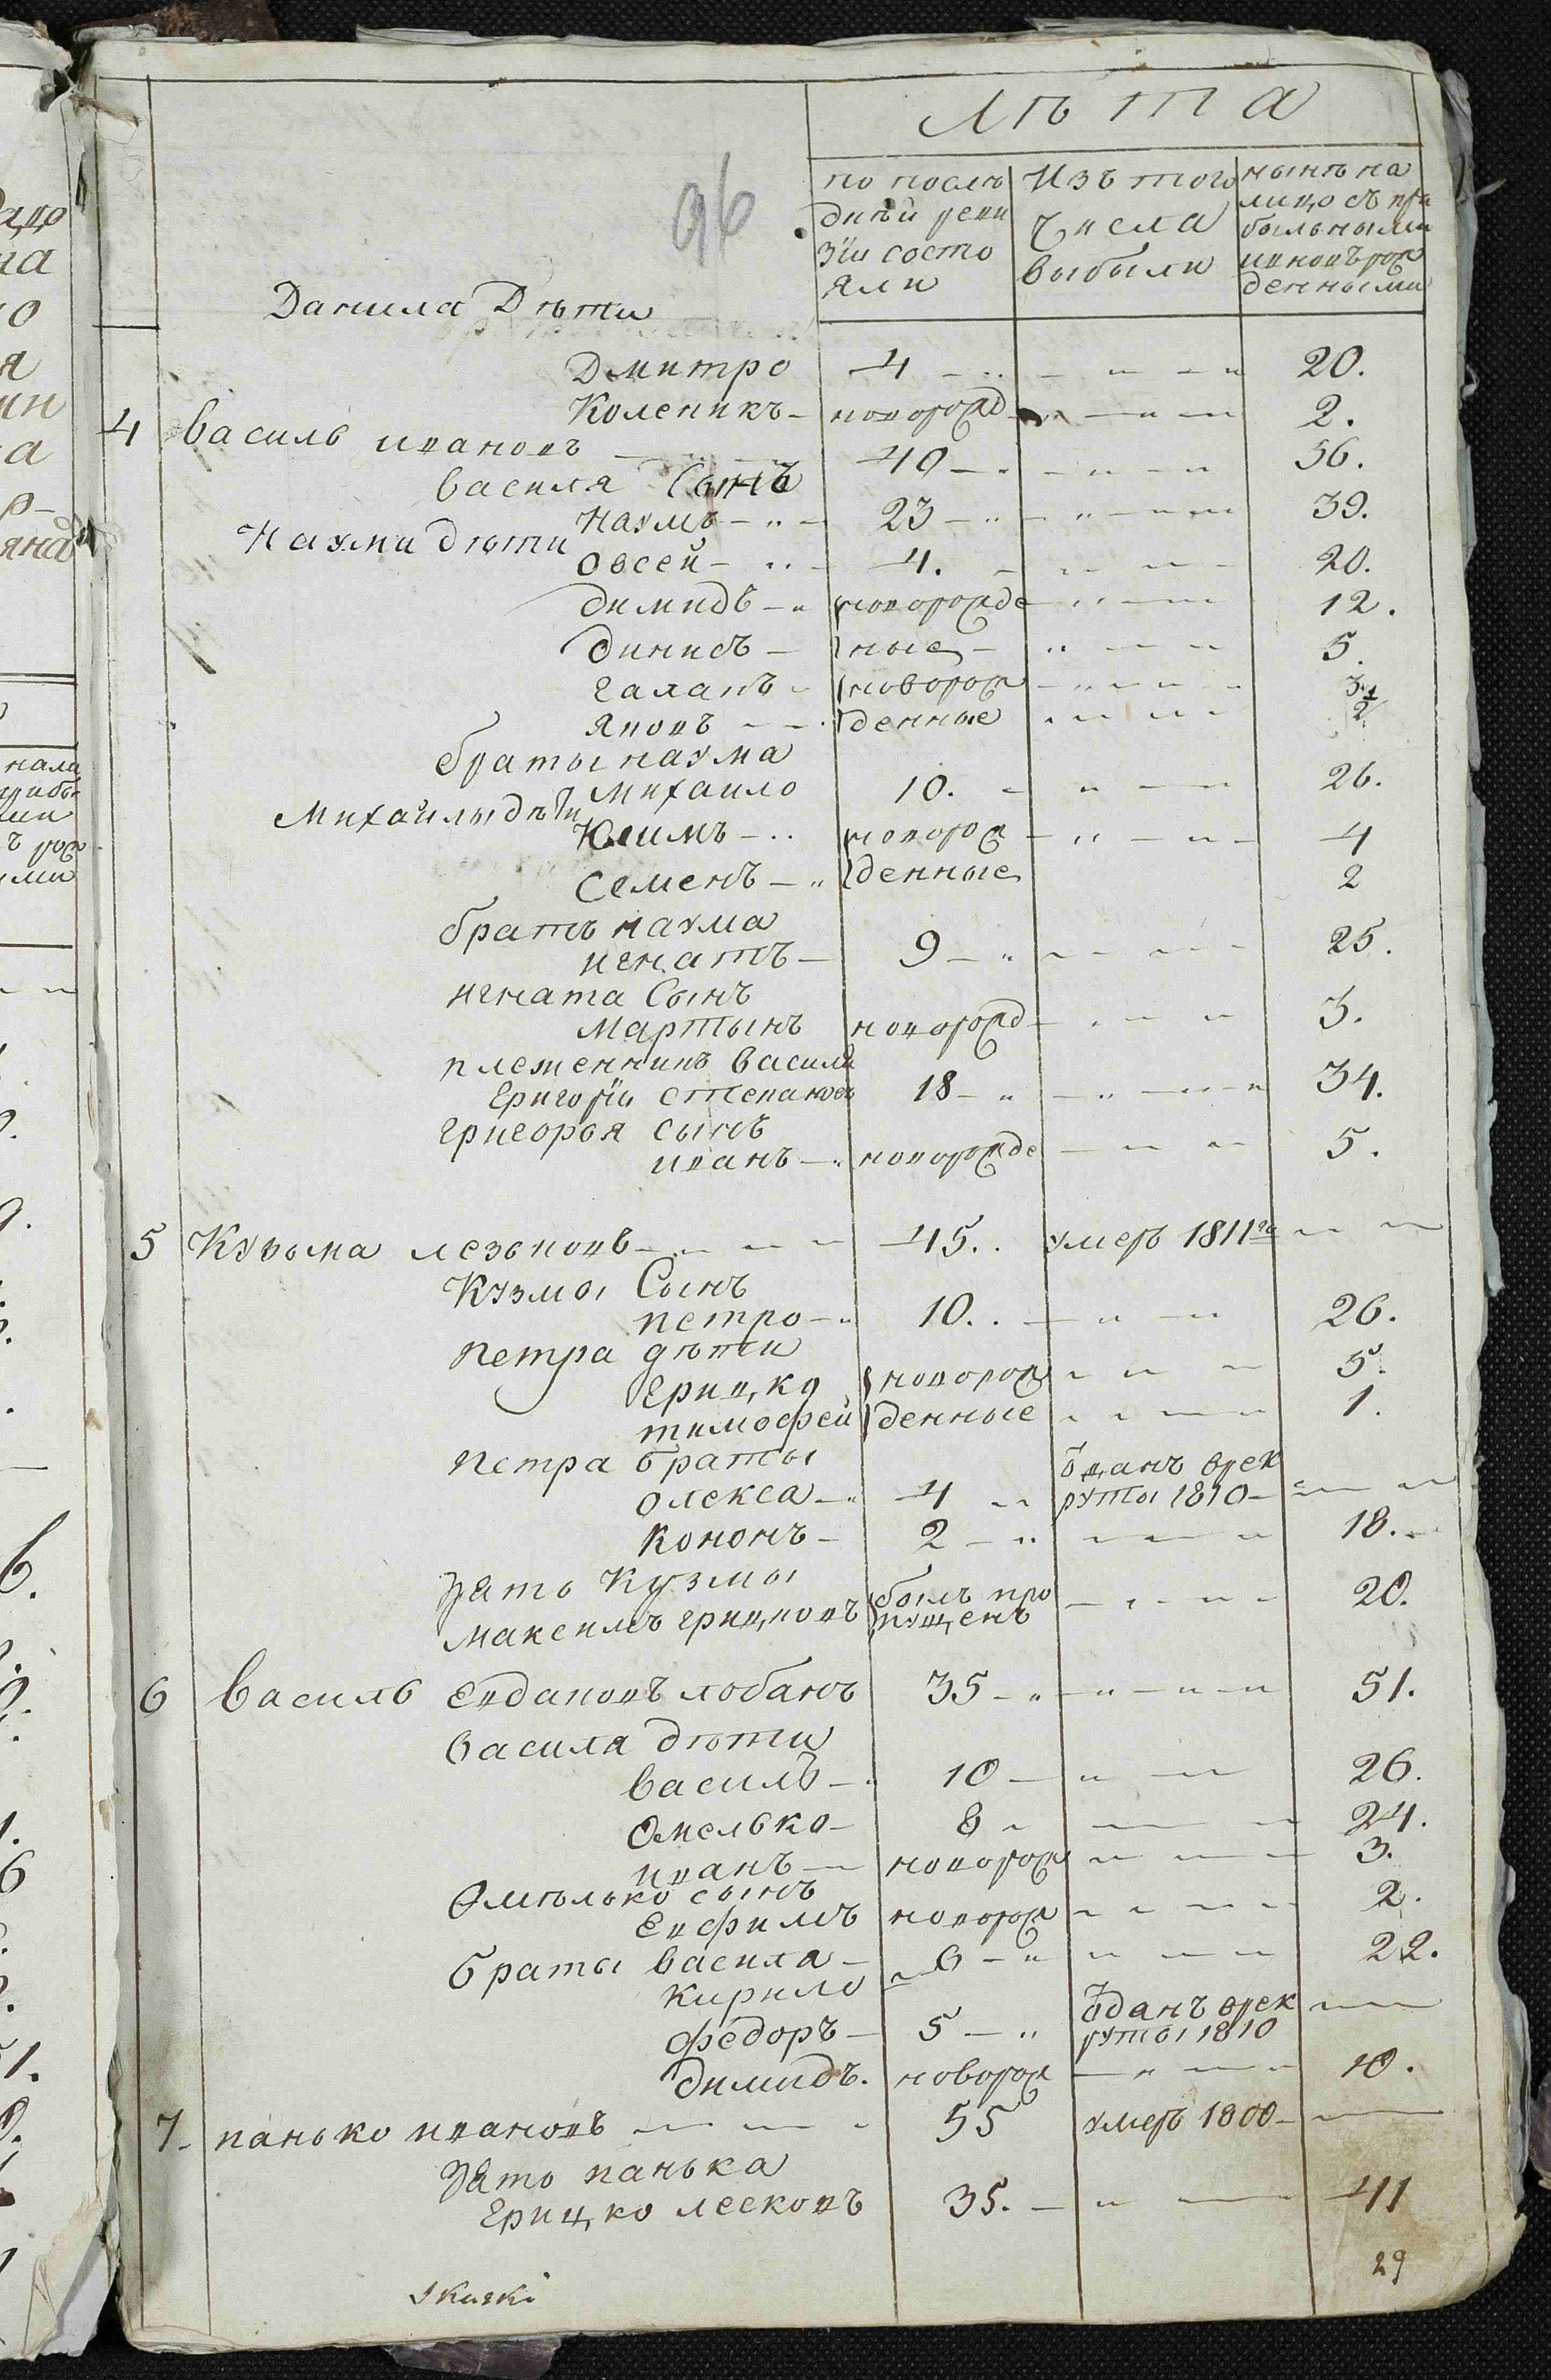 Лѣта
по послѣ
днѣй реви
зіи состо
яли
Изъ того
числа
выбыли
нынѣ на
лицо съ при
быльными
и новъ рож
денными
96
Данила Дѣти
Дмитро 4 20.
Коленикъ новорожд 2.
4 Василь ивановъ 40 56.
Василя Сынъ
Наумъ 23 39.
Наума дѣти
Овсей 4. 20.
димидъ новорожде 12.
динисъ ные 5.
галапъ новорож 3.
яковъ денные 1/2
браты наума
Михаило 10. 26.
Михайлы дѣти
Юхимъ новорож 4
Семенъ денные 2
братъ наума
игнатъ 9 25.
игната Сынъ
Мартынъ новорожд 3.
племенникъ василя
григорій степановъ 18 34.
григорья сынъ
иванъ новорожде 5.
5 Кузьма лезьковъ 45. умеръ 1811го
Кузмы Сынъ
петро 10. 26.
Петра дѣти
грицко новорож 5.
тимофей денные 1.
Петра браты
олекса 4 ѿданъ врек
руты 1810
кононъ 2 18.
Зять Кузмы
максимъ грицковъ былъ про
пущенъ 20.
6 Василь евдаковъ лобанъ 35 51.
Василя дѣти
василь 10 26.
Омелько 8 24.
иванъ новорож 3.
Омѣлько сынъ
евфимъ новорож 2.
браты василя
кирило 6 22.
федоръ 5 ѿданъ врек
руты 1810
димидъ новорож 10.
7 панько ивановъ 55 умеръ 1800
Зять панька
грицко лесковъ 35. 41
29